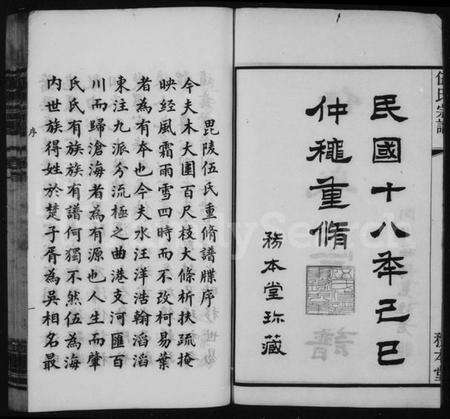 伍氏宗譜
務本堂
民國十八年己巳
仲穐重脩
務本堂珍藏
毘陵伍氏重脩譜牒序
今夫木大圍百尺枝大條析扶疏掩
映經風霜雨雪四時而不改柯易葉
者為有本也今夫水汪洋浩翰滔滔
東注九派分流極之曲港支河匯百
川而歸滄海者為有源也人生而肇
氏氏有族族有譜何獨不然伍為海
內世族得姓於楚子胥為吳相名最
序